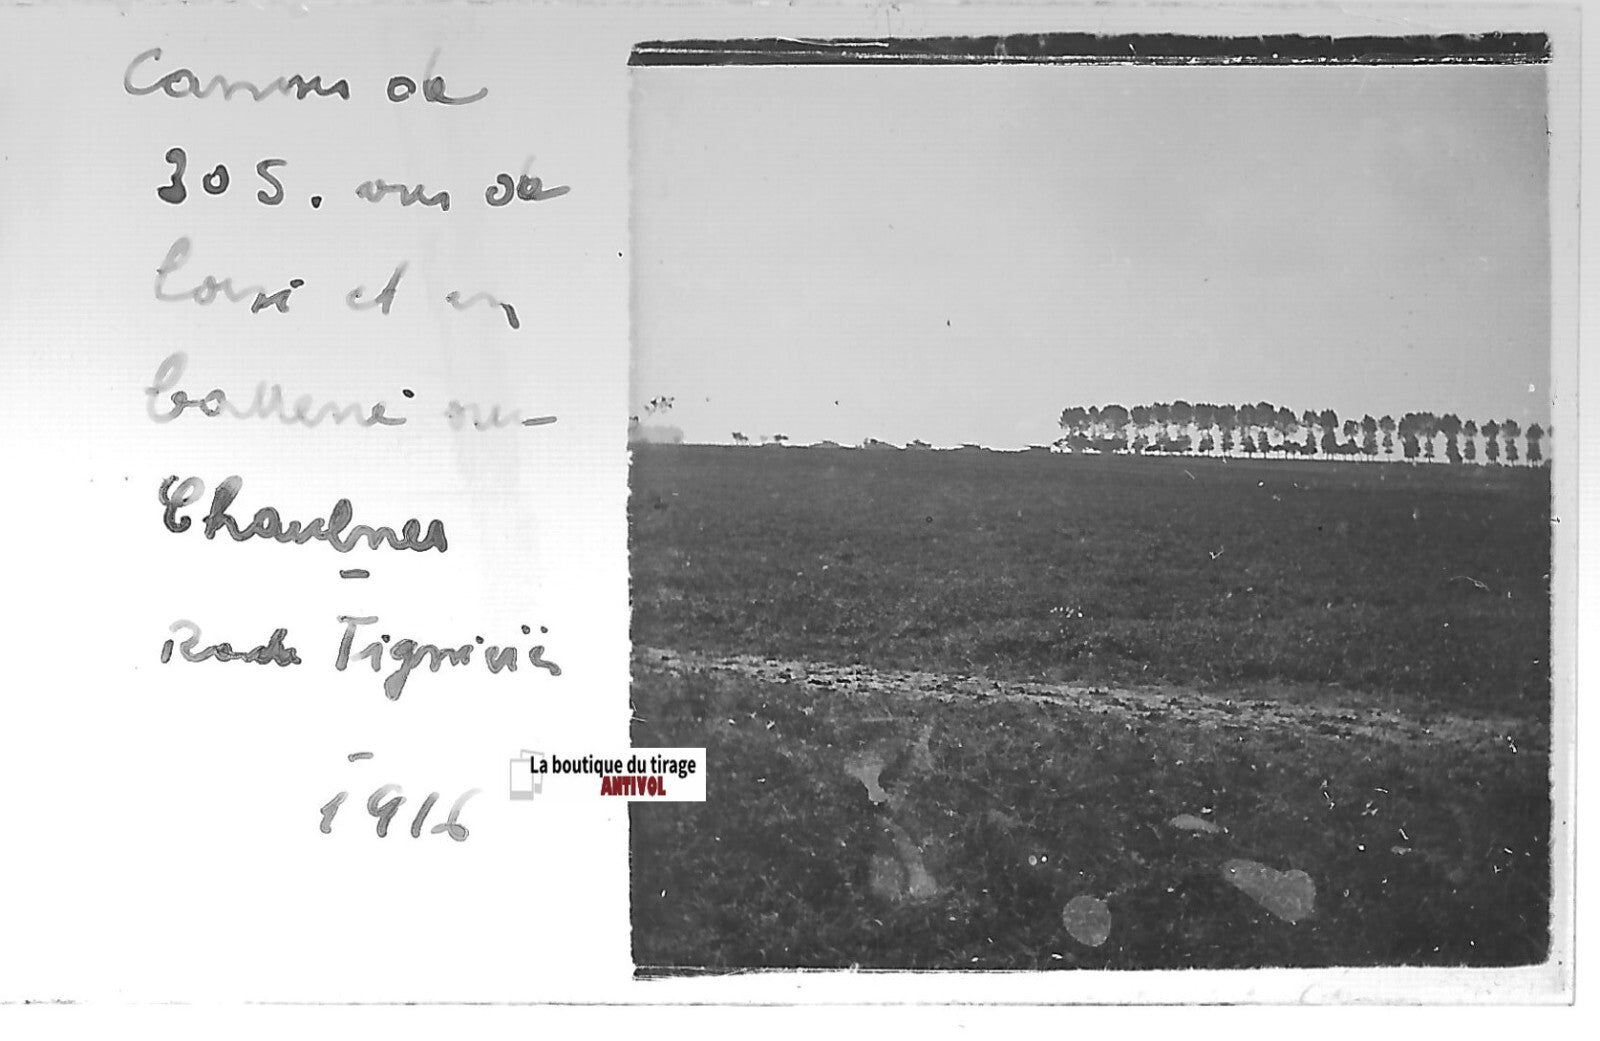 Canons de
305. vus de
loin et en
batterie sur
Chaulnes
Route Tignières
1916
La boutique du tirage
ANTIVOL